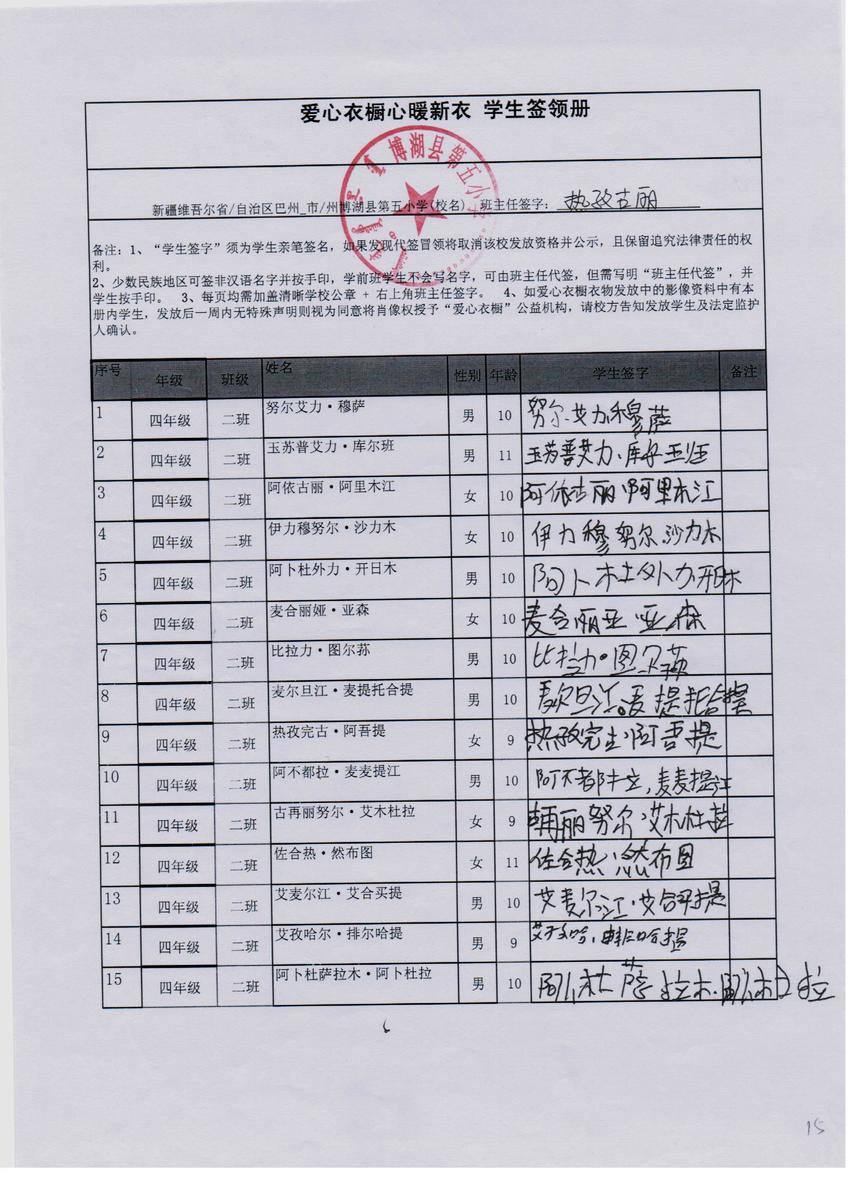 爱心衣橱心暖新衣 学生签领册
博湖县第五小学
新疆维吾尔省/自治区巴州_市/州博湖县第五小学(校名) 班主任签字: 热孜古丽
备注:1、“学生签字”须为学生亲笔签名,如果发现代签冒领将取消该校发放资格并公示,且保留追究法律责任的权
利。
2、少数民族地区可签非汉语名字并按手印,学前班学生不会写名字,可由班主任代签,但需写明“班主任代签”,并
学生按手印。 3、每页均需加盖清晰学校公章 + 右上角班主任签字。 4、如爱心衣橱衣物发放中的影像资料中有本
册内学生,发放后一周内无特殊声明则视为同意将肖像权授予“爱心衣橱”公益机构,请校方告知发放学生及法定监护
人确认。
序号 年级 班级 姓名 性别 年龄 学生签字 备注
1 四年级 二班 努尔艾力·穆萨 男 10 努尔.艾力穆萨
2 四年级 二班 玉苏普艾力·库尔班 男 11 玉苏普艾力·库尔班
3 四年级 二班 阿依古丽·阿里木江 女 10 阿依古丽·阿里木江
4 四年级 二班 伊力穆努尔·沙力木 女 10 伊力穆努尔.沙力木
5 四年级 二班 阿卜杜外力·开日木 男 10 阿卜杜外力开日木
6 四年级 二班 麦合丽娅·亚森 女 10 麦合丽亚 亚森
7 四年级 二班 比拉力·图尔荪 男 10 比拉力·图尔荪
8 四年级 二班 麦尔旦江·麦提托合提 男 10 麦尔旦江。麦提托合提
9 四年级 二班 热孜完古·阿吾提 女 9 热孜完古·阿吾提
10 四年级 二班 阿不都拉·麦麦提江 男 10 阿不都拉,麦麦提江
11 四年级 二班 古再丽努尔·艾木杜拉 女 9 丽努尔·艾木杜拉
12 四年级 二班 佐合热·然布图 女 11 佐合热·然布图
13 四年级 二班 艾麦尔江·艾合买提 男 10 艾麦尔江·艾合买提
14 四年级 二班 艾孜哈尔·排尔哈提 男 9
15 四年级 二班 阿卜杜萨拉木·阿卜杜拉 男 10 阿卜杜萨拉木·阿卜杜拉
15